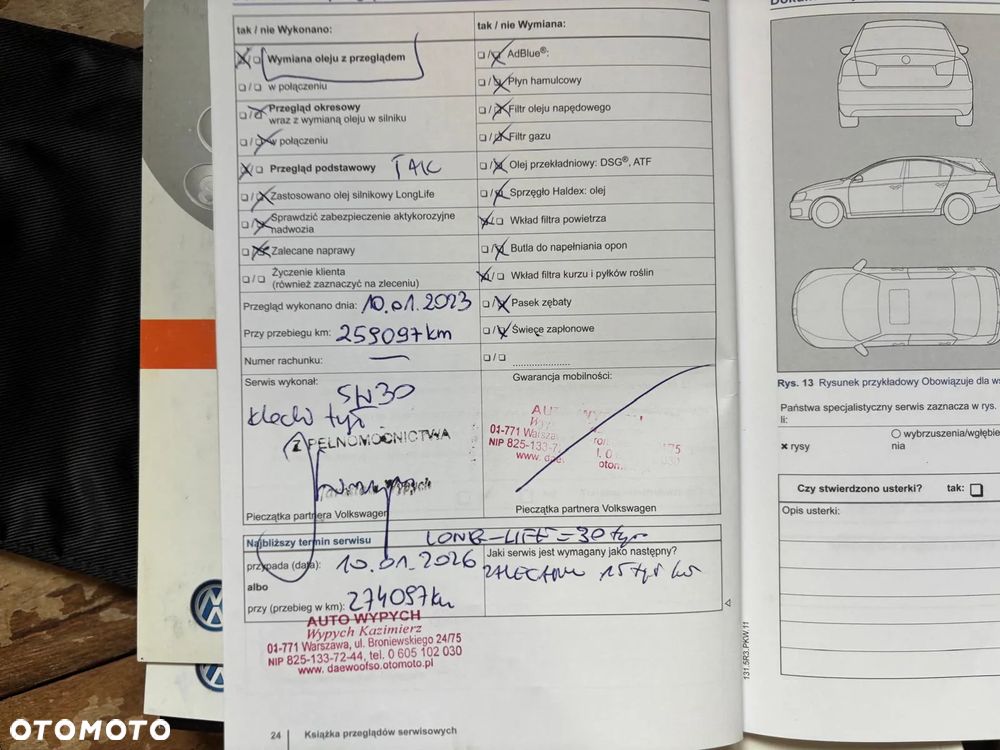 tak / nie Wykonano:
tak / nie Wymiana:
Wymiana oleju z przeglądem
w połączeniu
Przegląd okresowy
wraz z wymianą oleju w silniku
w połączeniu
Przegląd podstawowy TAK
Zastosowano olej silnikowy LongLife
Sprawdzić zabezpieczenie aktykorozyjne
nadwozia
Zalecane naprawy
Życzenie klienta
(również zaznaczyć na zleceniu)
Przegląd wykonano dnia: 10.01.2023
Przy przebiegu km: 259097km
Numer rachunku:
AdBlue®:
Płyn hamulcowy
Filtr oleju napędowego
Filtr gazu
Olej przekładniowy: DSG®, ATF
Sprzęgło Haldex: olej
Wkład filtra powietrza
Butla do napełniania opon
Wkład filtra kurzu i pyłków roślin
Pasek zębaty
Świece zapłonowe
Serwis wykonał:
5W30
Z PEŁNOMOCNICTWA
Pieczątka partnera Volkswagen
Gwarancja mobilności:
01-771 Warszawa
www.
Pieczątka partnera Volkswagen
Najbliższy termin serwisu
LONG-LIFE = 30 tyś
przypada (data): 10.01.2026
Jaki serwis jest wymagany jako następny?
albo
15 tyś km
przy (przebieg w km): 274097km
AUTO WYPYCH
Wypych Kazimierz
01-771 Warszawa, ul. Broniewskiego 24/75
NIP 825-133-72-44, tel. 0 605 102 030
www.daewoofso.otomoto.pl
24 Książka przeglądów serwisowych
Rys. 13 Rysunek przykładowy Obowiązuje dla
Państwa specjalistyczny serwis zaznacza w rys.
li:
rysy
wybrzuszenia/wgłębie
nia
Czy stwierdzono usterki? tak:
Opis usterki:
131.5R3.PKW.11
OTOMOTO